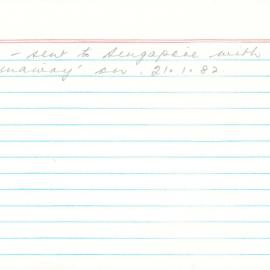 - sent to Singapore with
unaway' on . 21.1.82